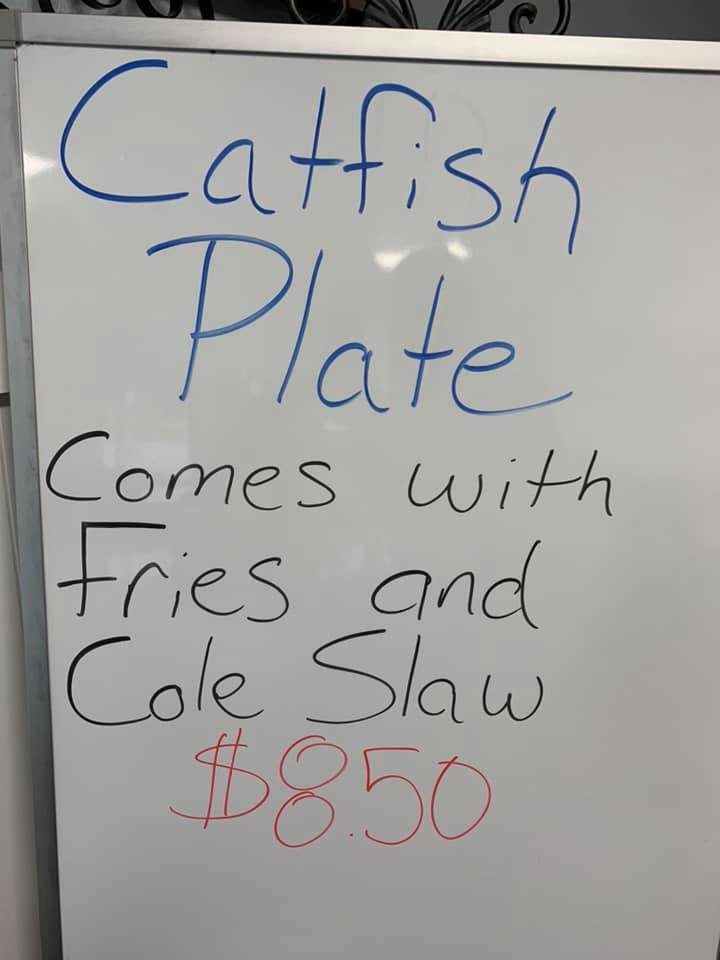 Catfish
Plate
Comes with
Fries and
Cole Slaw
$8.50